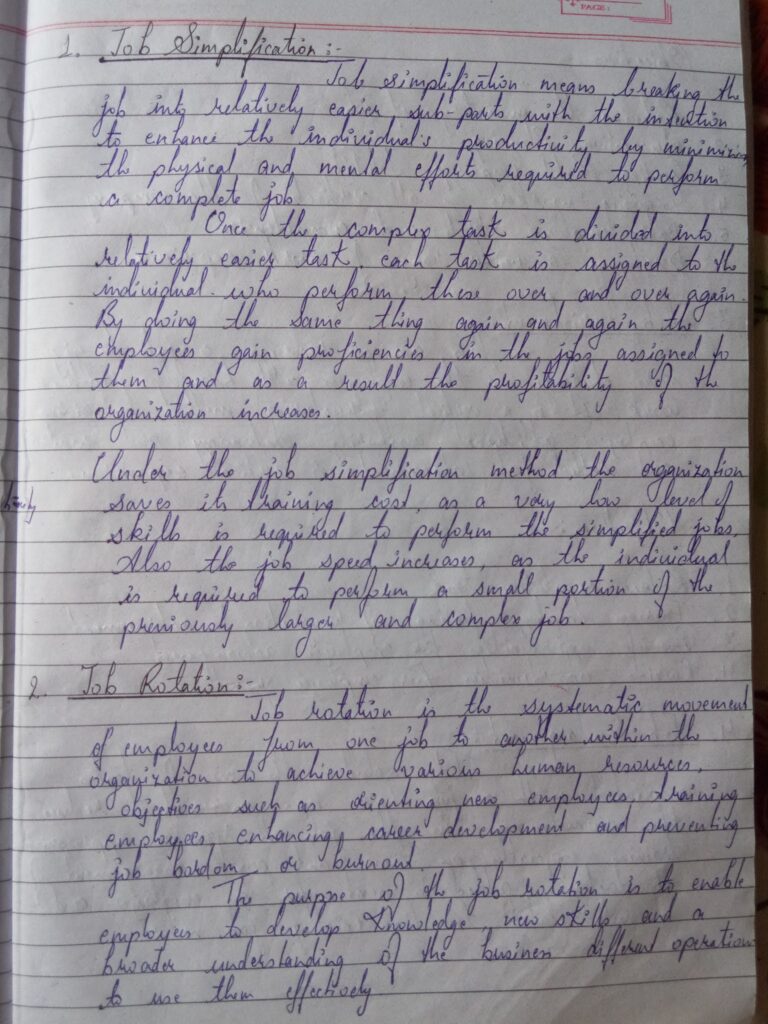 PAGE:
1. Job Simplification:-
Job simplification means breaking the
job into relatively easier sub-parts with the intention
to enhance the individual's productivity by minimizing
the physical and mental efforts required to perform
a complete job.
Once the complex task is divided into
relatively easier task each task is assigned to the
individual who perform these over and over again.
By doing the same thing again and again the
employees gain proficiencies in the jobs assigned to
them and as a result the profitability of the
organization increases.
Under the job simplification method, the organization
saves its training cost, as a very low level of
skills is required to perform the simplified jobs.
Also the job speed increases, as the individual
is required to perform a small portion of the
previously larger and complex job.
2. Job Rotation:-
Job rotation is the systematic movement
of employees from one job to another within the
organization to achieve various human resources,
objectives such as orienting new employees, training
employees, enhancing career development and preventing
job bordom or burnout.
The purpose of the job rotation is to enable
employees to develop knowledge, new skills and a
broader understanding of the business different operation
to use them effectively